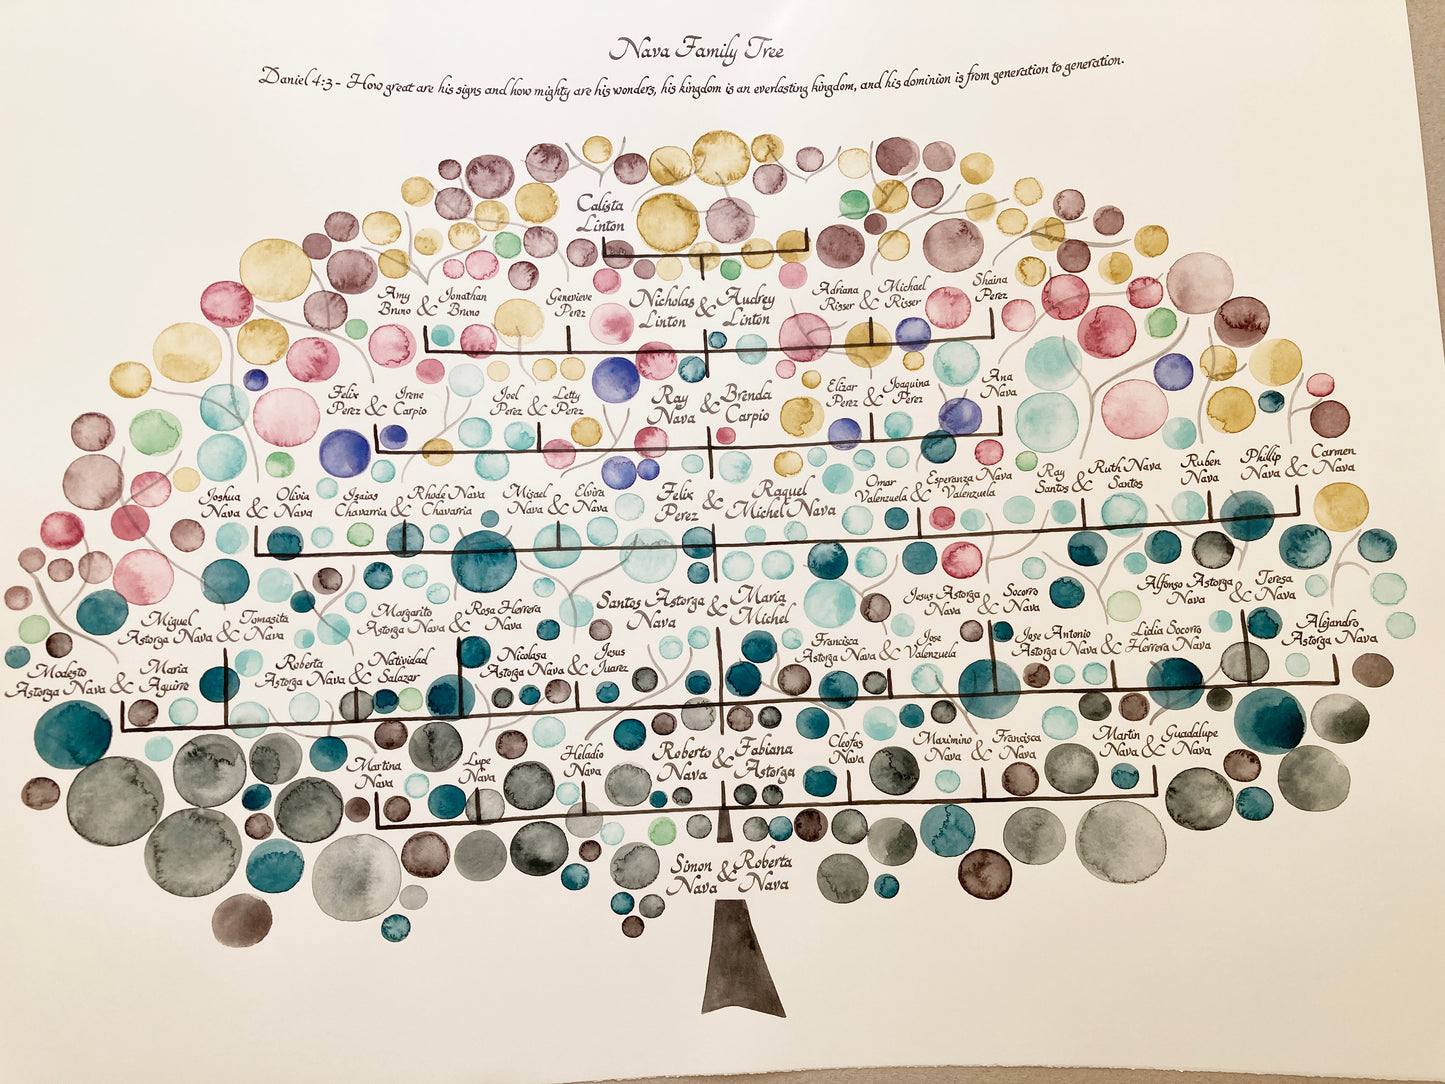 Nava Family Tree
Daniel 4:3 - How great are his signs and how mighty are his wonders, his kingdom is an everlasting kingdom, and his dominion is from generation to generation.
Calista
Linton
Amy
Bruno
&
Jonathan
Bruno
Genevieve
Perez
Nicholas
Linton
&
Audrey
Linton
Adriana
Risser
&
Michael
Risser
Shaina
Perez
Felix
Perez
&
Irene
Carpio
Joel
Perez
&
Letty
Perez
Ray
Nava
&
Brenda
Carpio
Elizar
Perez
&
Joaquina
Perez
Ana
Nava
Joshua
Nava
&
Olivia
Nava
Isaias
Chavarria
&
Rhode Nava
Chavarria
Misael
Nava
&
Elvira
Nava
Felix
Perez
&
Raquel
Michel Nava
Omar
Valenzuela
&
Esperanza Nava
Valenzuela
Ray
Santos
&
Ruth Nava
Santos
Ruben
Nava
Phillip
Nava
&
Carmen
Nava
Modesto
Astorga Nava
&
Maria
Aguirre
Miguel
Astorga Nava
&
Tomasita
Nava
Roberta
Astorga Nava
&
Natividad
Salazar
Margarito
Astorga Nava
&
Rosa Herrera
Nava
Nicolasa
Astorga Nava
&
Jesus
Juarez
Santos Astorga
Nava
&
Maria
Michel
Francisca
Astorga Nava
&
Jose
Valenzuela
Jesus Astorga
Nava
&
Socorro
Nava
Jose Antonio
Astorga Nava
&
Lidia Socorro
Herrera Nava
Alfonso Astorga
Nava
&
Teresa
Nava
Alejandro
Astorga Nava
Martina
Nava
Lupe
Nava
Heladio
Nava
Roberto
Nava
&
Fabiana
Astorga
Cleofas
Nava
Maximino
Nava
&
Francisca
Nava
Martin
Nava
&
Guadalupe
Nava
Simon
Nava
&
Roberta
Nava